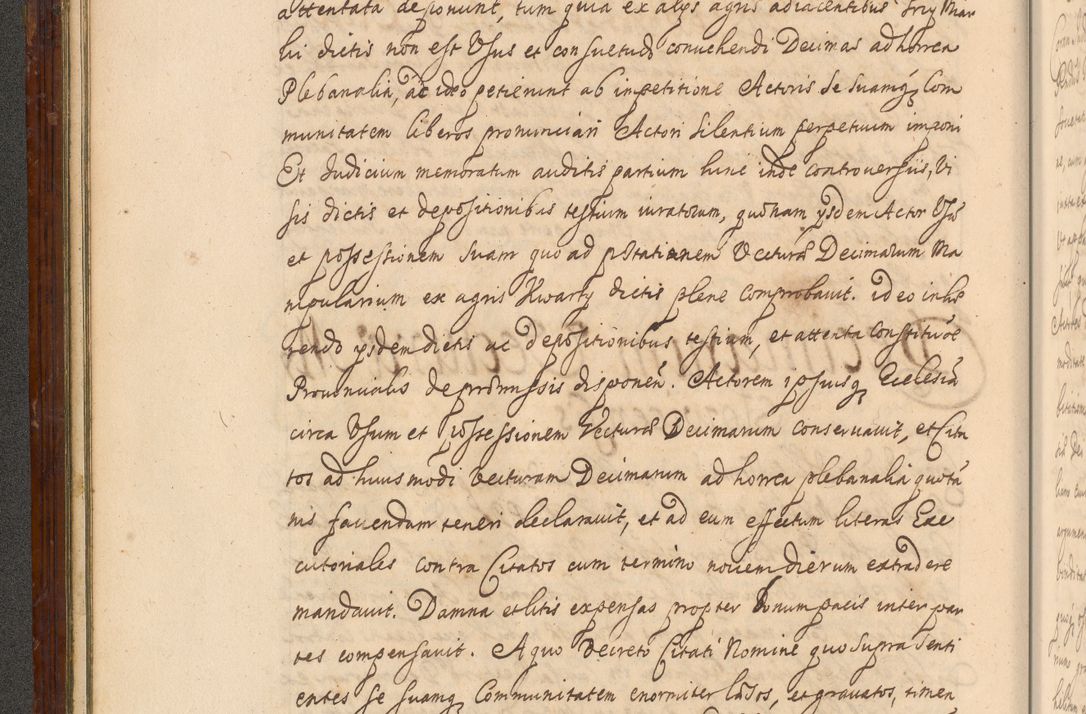 attentata deponunt, tum quia ex alijs agris adiacentibus Fryj Mar
lii dictis non est Usus et consuetudo conuehendi Decimas ad horrea
Plebanalia, ac ideo petierunt ab inpetitione Actoris se suamq Com
munitatem liberos pronunciari Actori silentium perpetuum imponi
Et Judicium memoratum auditis partium hunc inde controuersiis, Vi
sis dictis et depositionibus testium iuratorum, quoniam ysdem Actor Usu
et possessionem suam quo ad pstationem Vecturae Decimarum Ma
nipularium ex agris Kwarty dictis plene comprobauit. ideo inhe
rendo ysdem dictis ac depositionibus testium, et attenta Constituoe
Prouincialis de praemissis disponen. Actorem ipsiusq Eclesia
circa Usum et Possessionem Vecturae Decimarum conseruauit, et Cita
tos ad huiusmodi vecturam Decimarum ad horrea plebanalia quota
nis faciendam teneri declarauit, et ad eum effectum literas Exe
cutoriales contra Citatos cum termino nouem dierum extradere
mandauit. Damna et litis expensas propter bonum pacis inter par
tes compensauit. A quo Decreto Citati Nomine quo supra senti
entes se suamq Communitatem enormiter laesos, et grauatos, timen